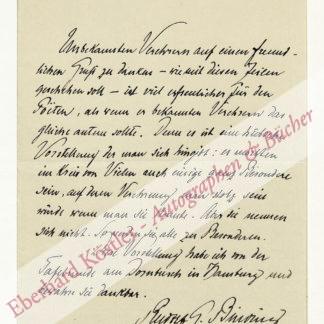 Unbekannten Verehrern auf einen freund-
lichen Gruß zu danken – wie mit diesen Zeilen
geschehen soll – ist viel erfreulicher für den
Poëten, als wenn er bekannten Verehrern das
gleiche antun sollte. Denn es ist eine
Vorstellung der man sich hingibt: es möchten
im Kreis von Vielen auch einige ganz Besondere
sein, auf deren Verehrung man stolz sein
würde wenn man sie kennte. Aber sie nennen
sich nicht. So werden sie alle zu Besonderen.
Vorstellung habe ich von der
am Dornbusch in Hamburg und
dankbar.
Rudolf G. Binding
Eberhard Köstler Autographen & Bücher